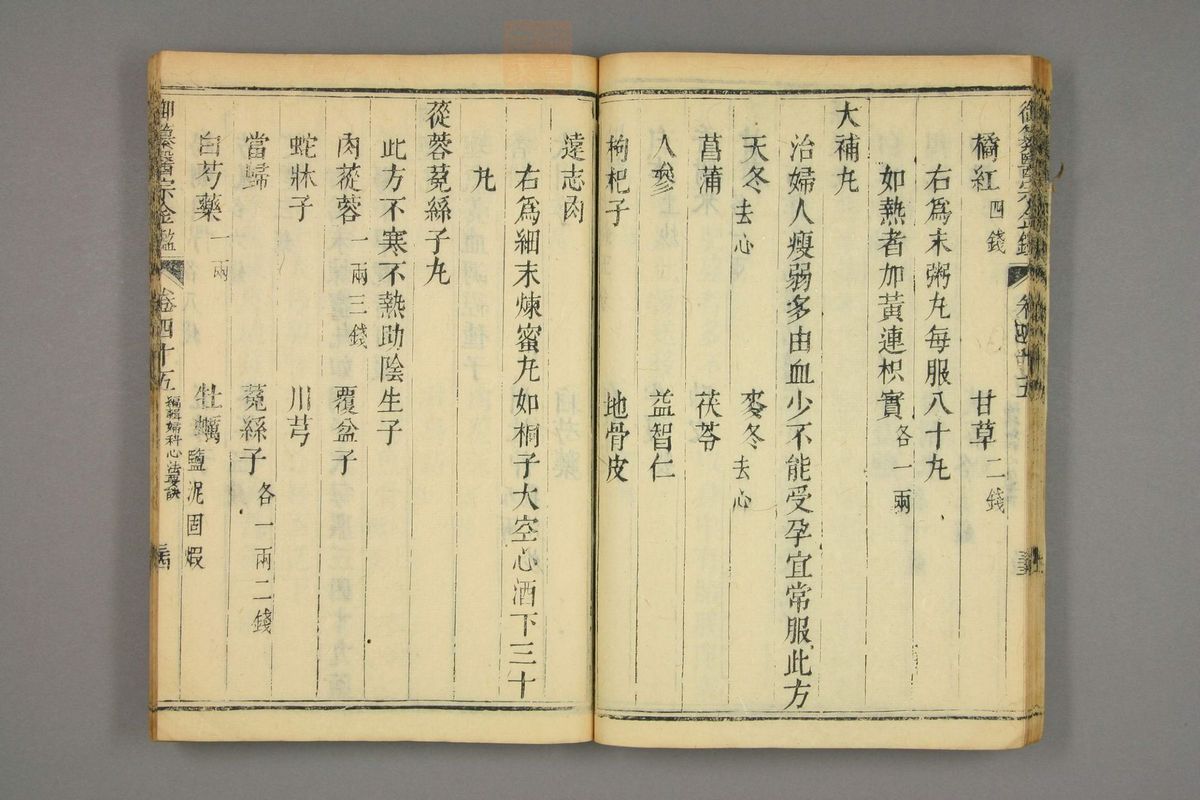 橘紅四錢　甘草二錢
右爲末粥丸每服八十丸
如熱者加黃連枳實各一兩
大補丸
治婦人瘦弱多由血少不能受孕宜常服此方
天冬去心　麥冬去心
菖蒲　茯苓
人參　益智仁
枸杞子　地骨皮
遠志肉
右爲細末煉蜜丸如桐子大空心酒下三十
丸
蓯蓉菟絲子丸
此方不寒不熱助陰生子
肉蓯蓉一兩三錢　覆盆子
蛇牀子　川芎
當歸　菟絲子各一兩二錢
白芍藥一兩　牡蠣鹽泥固煆
御纂醫宗金鑑　卷四十五　編輯婦科心法要訣